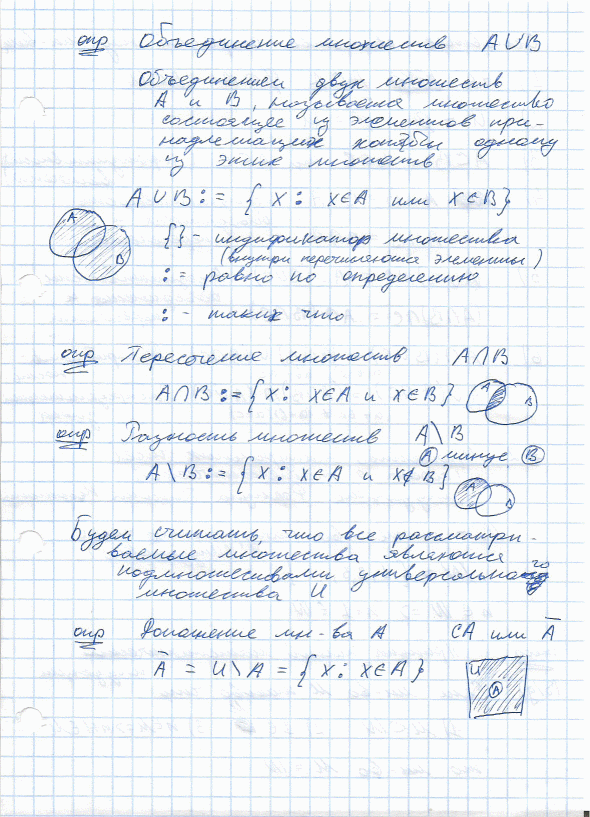 опр Объединение множеств A∪B
Объединением двух множеств
A и B, называется множество
состоящее из элементов при-
надлежащих хотябы одному
из этих множеств
A∪B := { x : x∈A или x∈B }
A
B
{} - индификатор множества
(внутри перечисляются элементы)
:= равно по определению
: - таких что
опр Пересечение множеств A∩B
A∩B := { x : x∈A и x∈B }
A B
опр Разность множеств A\B
A минус B
A\B := { x : x∈A и x∉B }
A B
Будем считать, что все рассматри-
ваемые множества являются
подмножествами универсального
множества U
опр Дополнение мн-ва A CA или Ā
Ā = U\A = { x : x∈A }
U
A